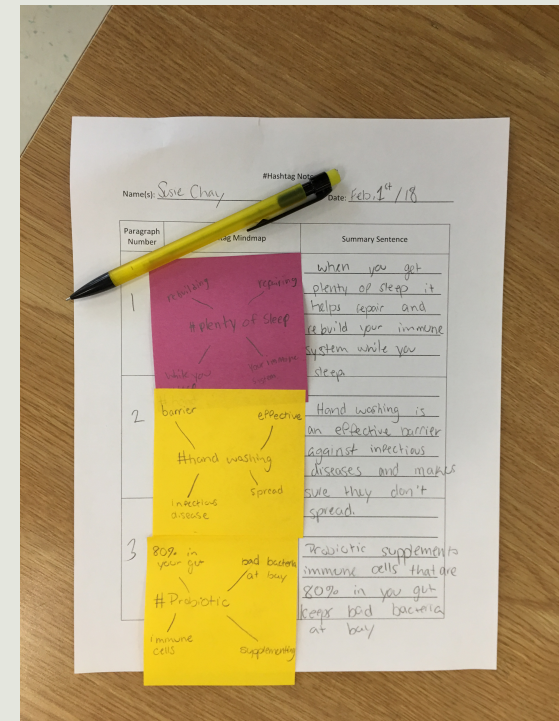 #Hashtag Note
Name(s): Susie Chay
Date: Feb. 1st/18
Paragraph Number
tag Mindmap
Summary Sentence
1
rebuilding
repairing
#plenty of sleep
while you
your immune
system
when you get
plenty of sleep it
helps repair and
rebuild your immune
system while you
sleep
2
barrier
effective
#hand washing
infectious
disease
spread
Hand washing is
an effective barrier
against infectious
diseases and makes
sure they don't
spread.
3
80% in
your gut
bad bacteria
at bay
#Probiotic
immune
cells
supplementing
Probiotic supplements
immune cells that are
80% in you gut
keeps bad bacteria
at bay